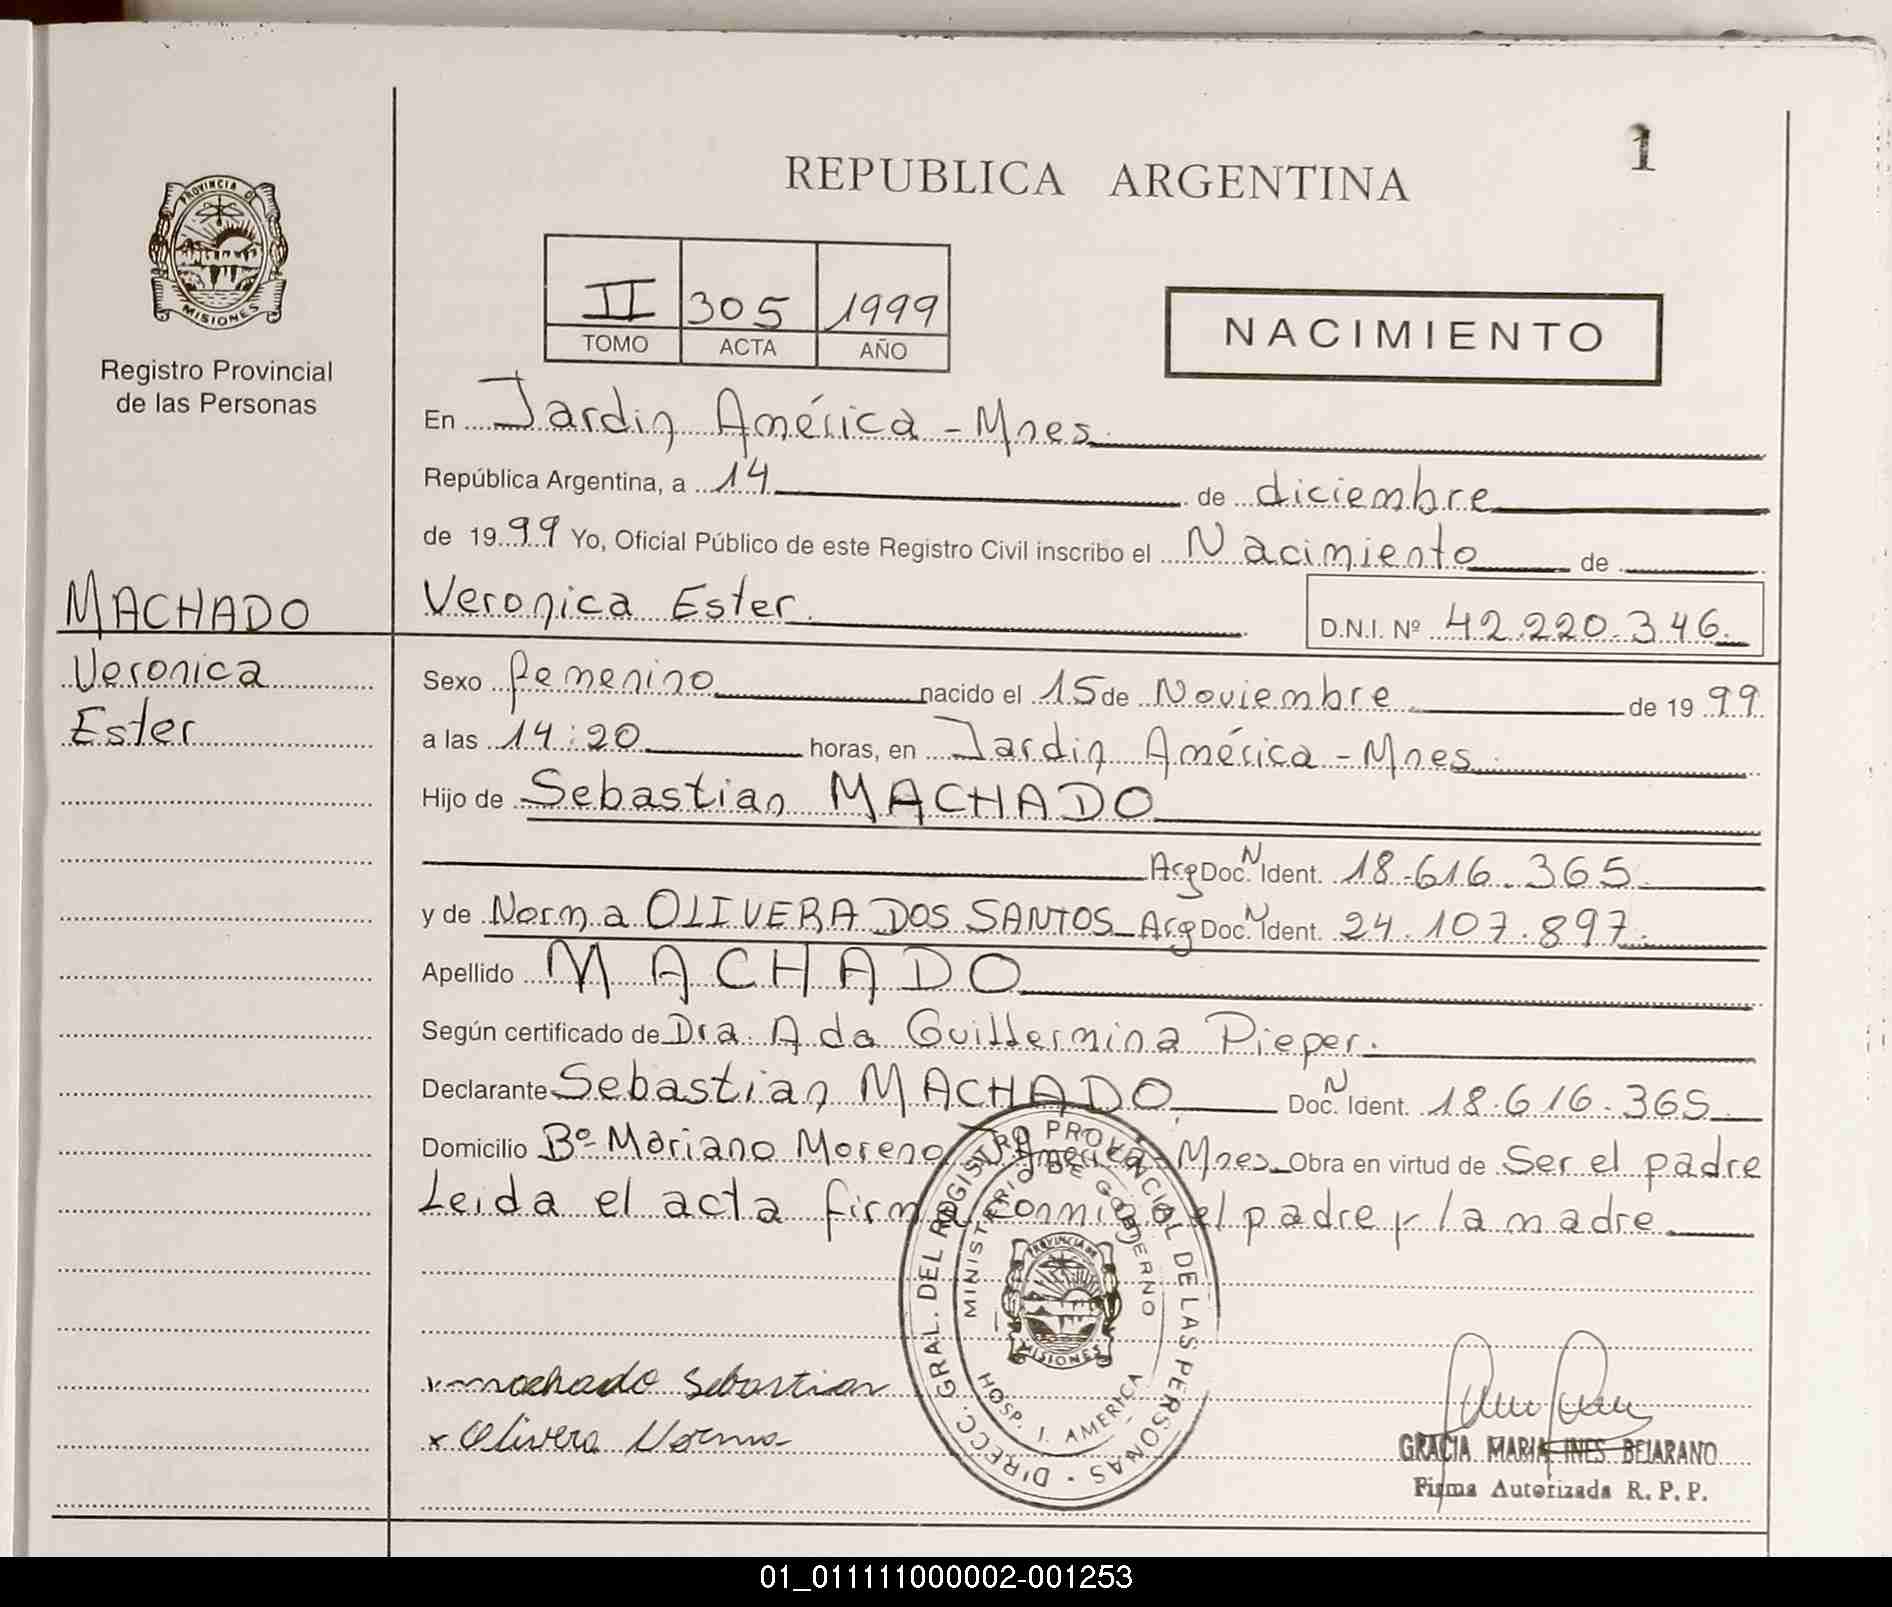 1
REPUBLICA ARGENTINA
PROVINCIA DE
MISIONES
Registro Provincial
de las Personas
II 305 1999
TOMO ACTA AÑO
NACIMIENTO
En Jardin América - Mnes.
República Argentina, a 14 de diciembre
de 1999 Yo, Oficial Público de este Registro Civil inscribo el Nacimiento de
MACHADO
Veronica
Ester
Veronica Ester
D.N.I. Nº 42.220.346.
Sexo femenino nacido el 15 de Noviembre de 1999
a las 14:20 horas, en Jardin América - Mnes.
Hijo de Sebastian MACHADO
Arg Doc. N Ident. 18.616.365
y de Norma OLIVERA DOS SANTOS Arg Doc. N Ident. 24.107.897.
Apellido MACHADO
Según certificado de Dra. Ada Guillermina Pieper.
Declarante Sebastian MACHADO Doc. N Ident. 18.616.365
Domicilio Bº Mariano Moreno J. América - Mnes Obra en virtud de Ser el padre
Leida el acta firma conmigo el padre y la madre
DIRECC. GRAL. DEL REGISTRO PROVINCIAL DE LAS PERSONAS
MINISTERIO DE GOBIERNO
PROVINCIA DE
MISIONES
HOSP. J. AMERICA
x machado Sebastian
x Olivera Norma
GRACIA MARIA INES BEJARANO
Firma Autorizada R. P. P.
01_011111000002-001253